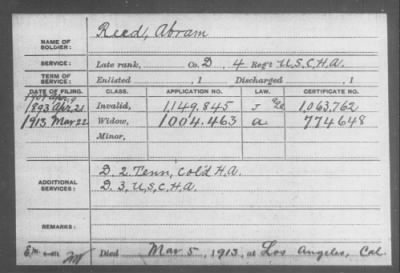 NAME OF SOLDIER: Reed, Abram
SERVICE: Late rank, Co. D, 4 Reg't U.S.C.H.A.
TERM OF SERVICE: Enlisted , 1 Discharged , 1
DATE OF FILING. CLASS. APPLICATION NO. LAW. CERTIFICATE NO.
1893 Apr. 21 Invalid, 1,149,845 J 1,063,762
1913 Mar 22 Widow, 1004.463 a 774648
Minor,
ADDITIONAL SERVICES: D. 2. Tenn, Col'd H.A.
D. 3, U.S.C.H.A.
REMARKS:
Died Mar 5, 1913, at Los Angeles, Cal.